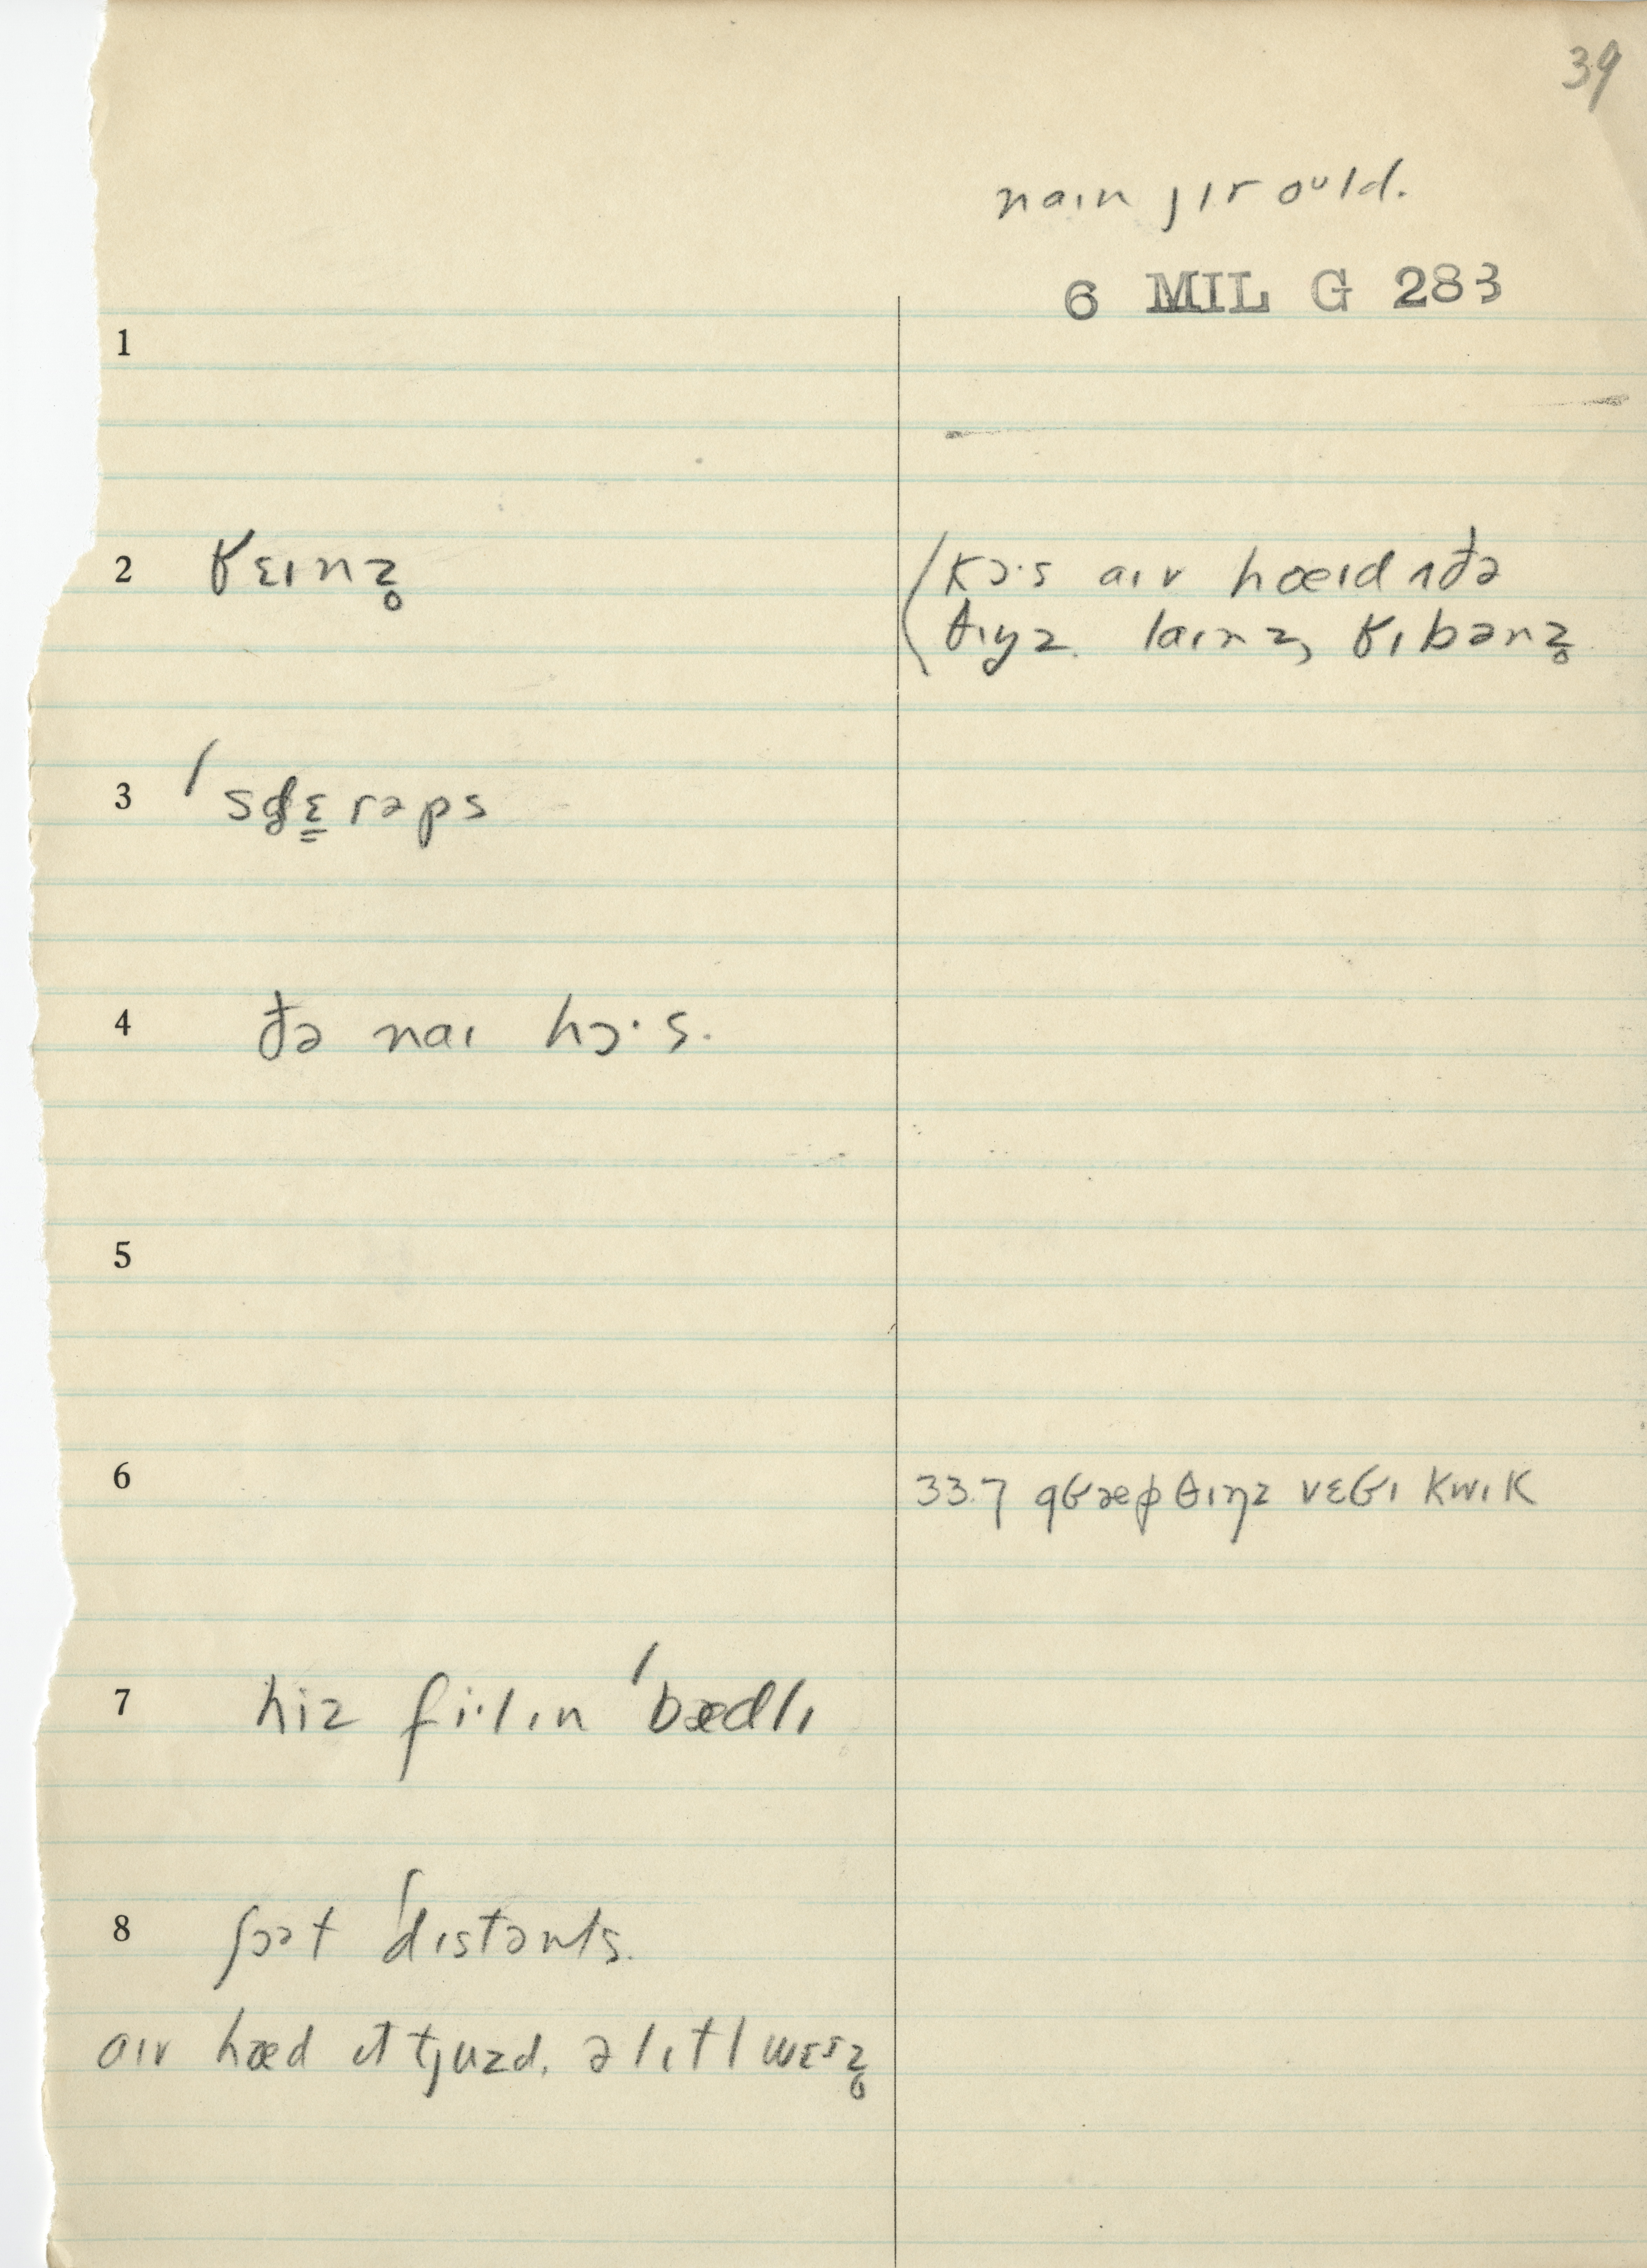 39
naɪn jɪr oᵘld.
6 MIL G 283
1
2 ʁɛɪnz̥ (kɔ·s aɪv hæɪd ɪðə
θɪŋz. laɪnz, ʁɪbənz̥
3 ˈsɛ̳rəps
4 ðə naɪ hɔ·s.
5
6 33.7 æ θɪŋz vɛ kwɪk
7 hiz fi·lɪn ˈbædlɪ
8 ʃɔət ˈdɪstənts.
aɪv hæd ɪt tjuzd. ə lɪtl wɛɪz̥